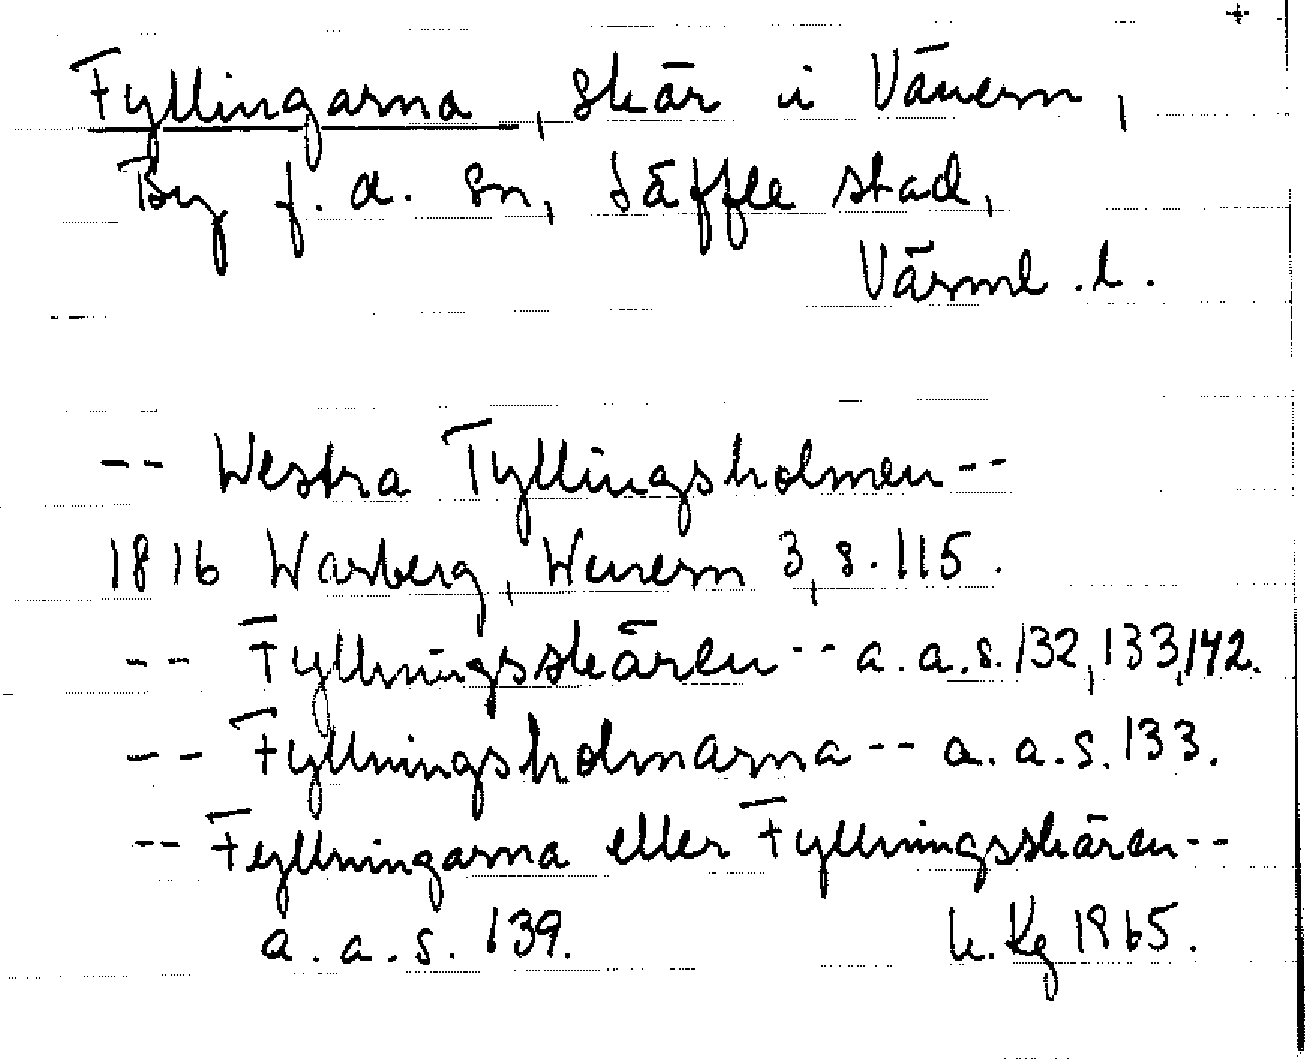 +
Fyllingarna, skär i Vänern,
By f.d. sn, Säffle stad,
Värml. l.
-- Westra Tyllingsholmen --
1816 Warberg, Wenern 3, s. 115.
-- Fyllningsskären -- a.a.s. 132, 133, 142.
-- Fyllningsholmarna -- a.a.s. 133.
-- Fyllningarna eller Fyllningsskären --
a.a.s. 139. 1965.